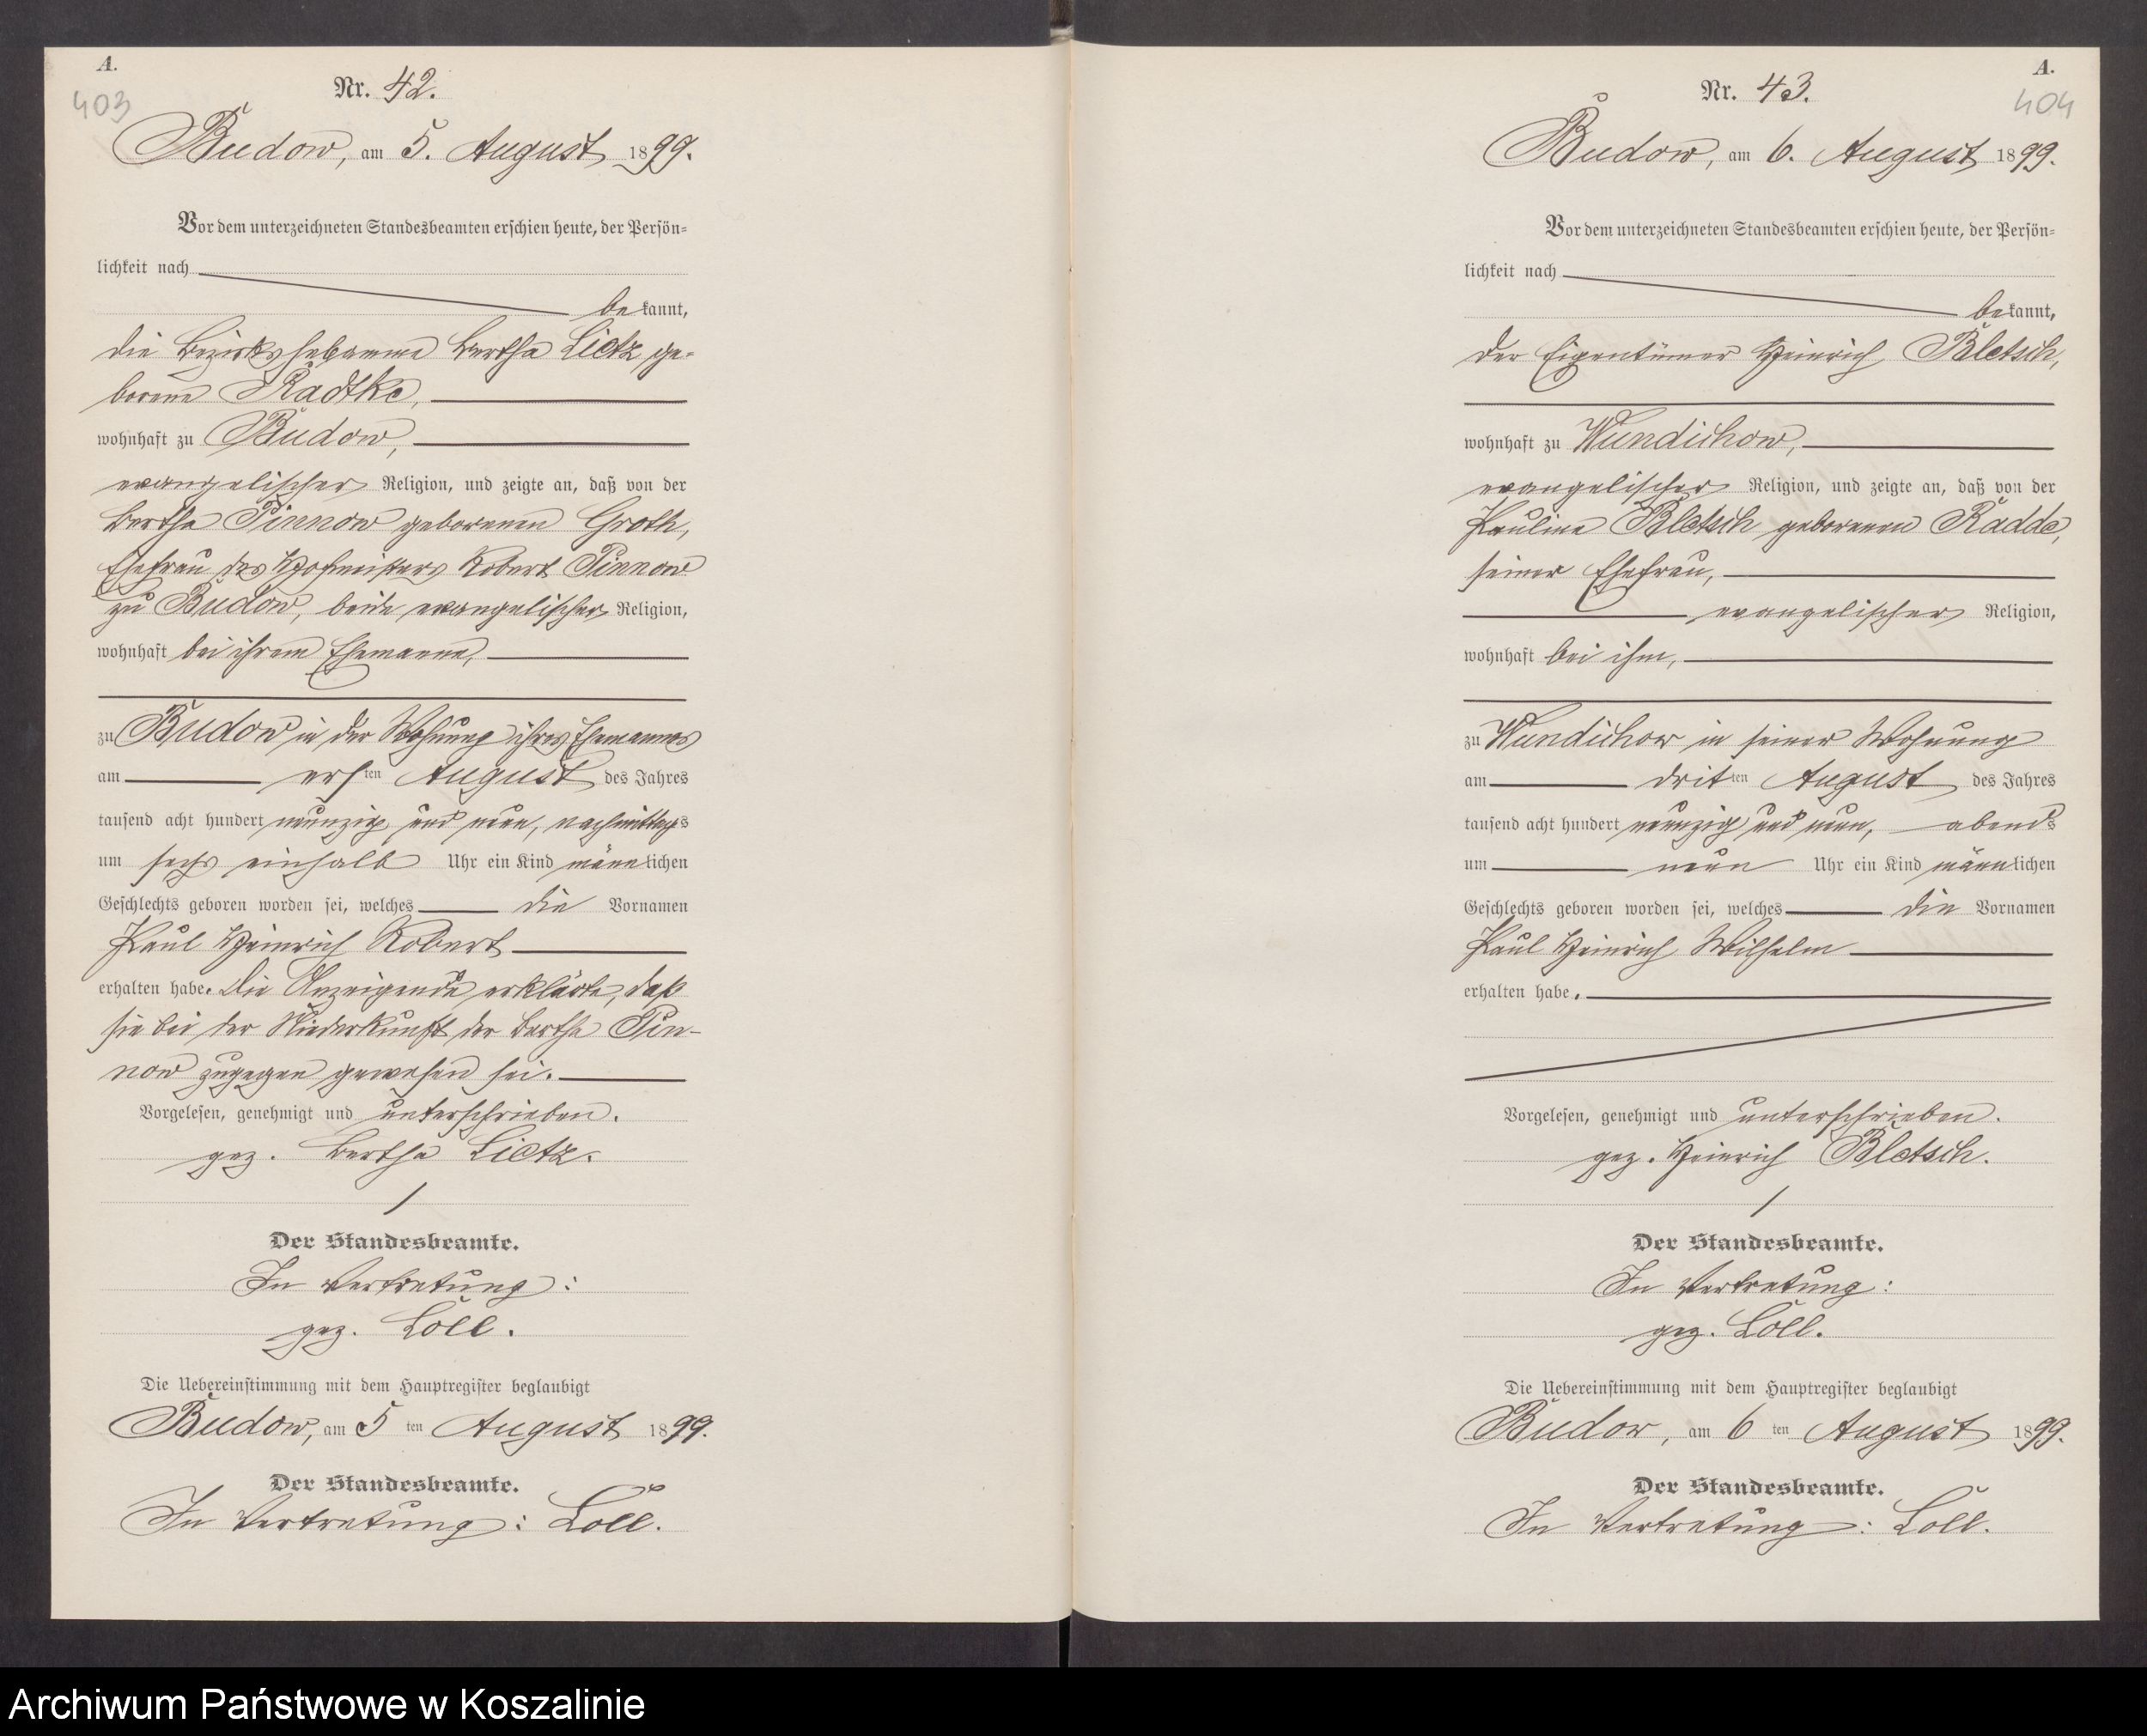 A.
403
Nr. 42.
Budow, am 5. August 1899.
Vor dem unterzeichneten Standesbeamten erschien heute, der Persön=
lichkeit nach
bekannt,
die Bezirkshebamme Bertha Lietz ge-
borene Radtke,
wohnhaft zu Budow,
evangelischer Religion, und zeigte an, daß von der
Bertha Pinnow geborenen Groth,
Ehefrau des Hofmeisters Robert Pinnow
zu Budow, beide evangelischer Religion,
wohnhaft bei ihrem Ehemanne,
zu Budow in der Wohnung ihres Ehemannes
am ersten August des Jahres
tausend acht hundert neunzig und neun, nachmittags
um sechs einhalb Uhr ein Kind männlichen
Geschlechts geboren worden sei, welches die Vornamen
Paul Heinrich Robert
erhalten habe. Die Anzeigende erklärte, daß
sie bei der Niederkunft der Bertha Pin-
now zugegen gewesen sei.
Vorgelesen, genehmigt und unterschrieben.
gez. Bertha Lietz.
Der Standesbeamte.
In Vertretung:
gez. Loll.
Die Uebereinstimmung mit dem Hauptregister beglaubigt
Budow, am 5 ten August 1899.
Der Standesbeamte.
In Vertretung: Loll.
A.
404
Nr. 43.
Budow, am 6. August 1899.
Vor dem unterzeichneten Standesbeamten erschien heute, der Persön=
lichkeit nach
bekannt,
der Eigentümer Heinrich Bletsch,
wohnhaft zu Wundichow,
evangelischer Religion, und zeigte an, daß von der
Pauline Bletsch geborenen Radde,
seiner Ehefrau,
evangelischer Religion,
wohnhaft bei ihm,
zu Wundichow in seiner Wohnung
am dritten August des Jahres
tausend acht hundert neunzig und neun, abends
um neun Uhr ein Kind männlichen
Geschlechts geboren worden sei, welches die Vornamen
Paul Heinrich Wilhelm
erhalten habe.
Vorgelesen, genehmigt und unterschrieben.
gez. Heinrich Bletsch.
Der Standesbeamte.
In Vertretung:
gez. Loll.
Die Uebereinstimmung mit dem Hauptregister beglaubigt
Budow, am 6 ten August 1899.
Der Standesbeamte.
In Vertretung: Loll.
Archiwum Państwowe w Koszalinie